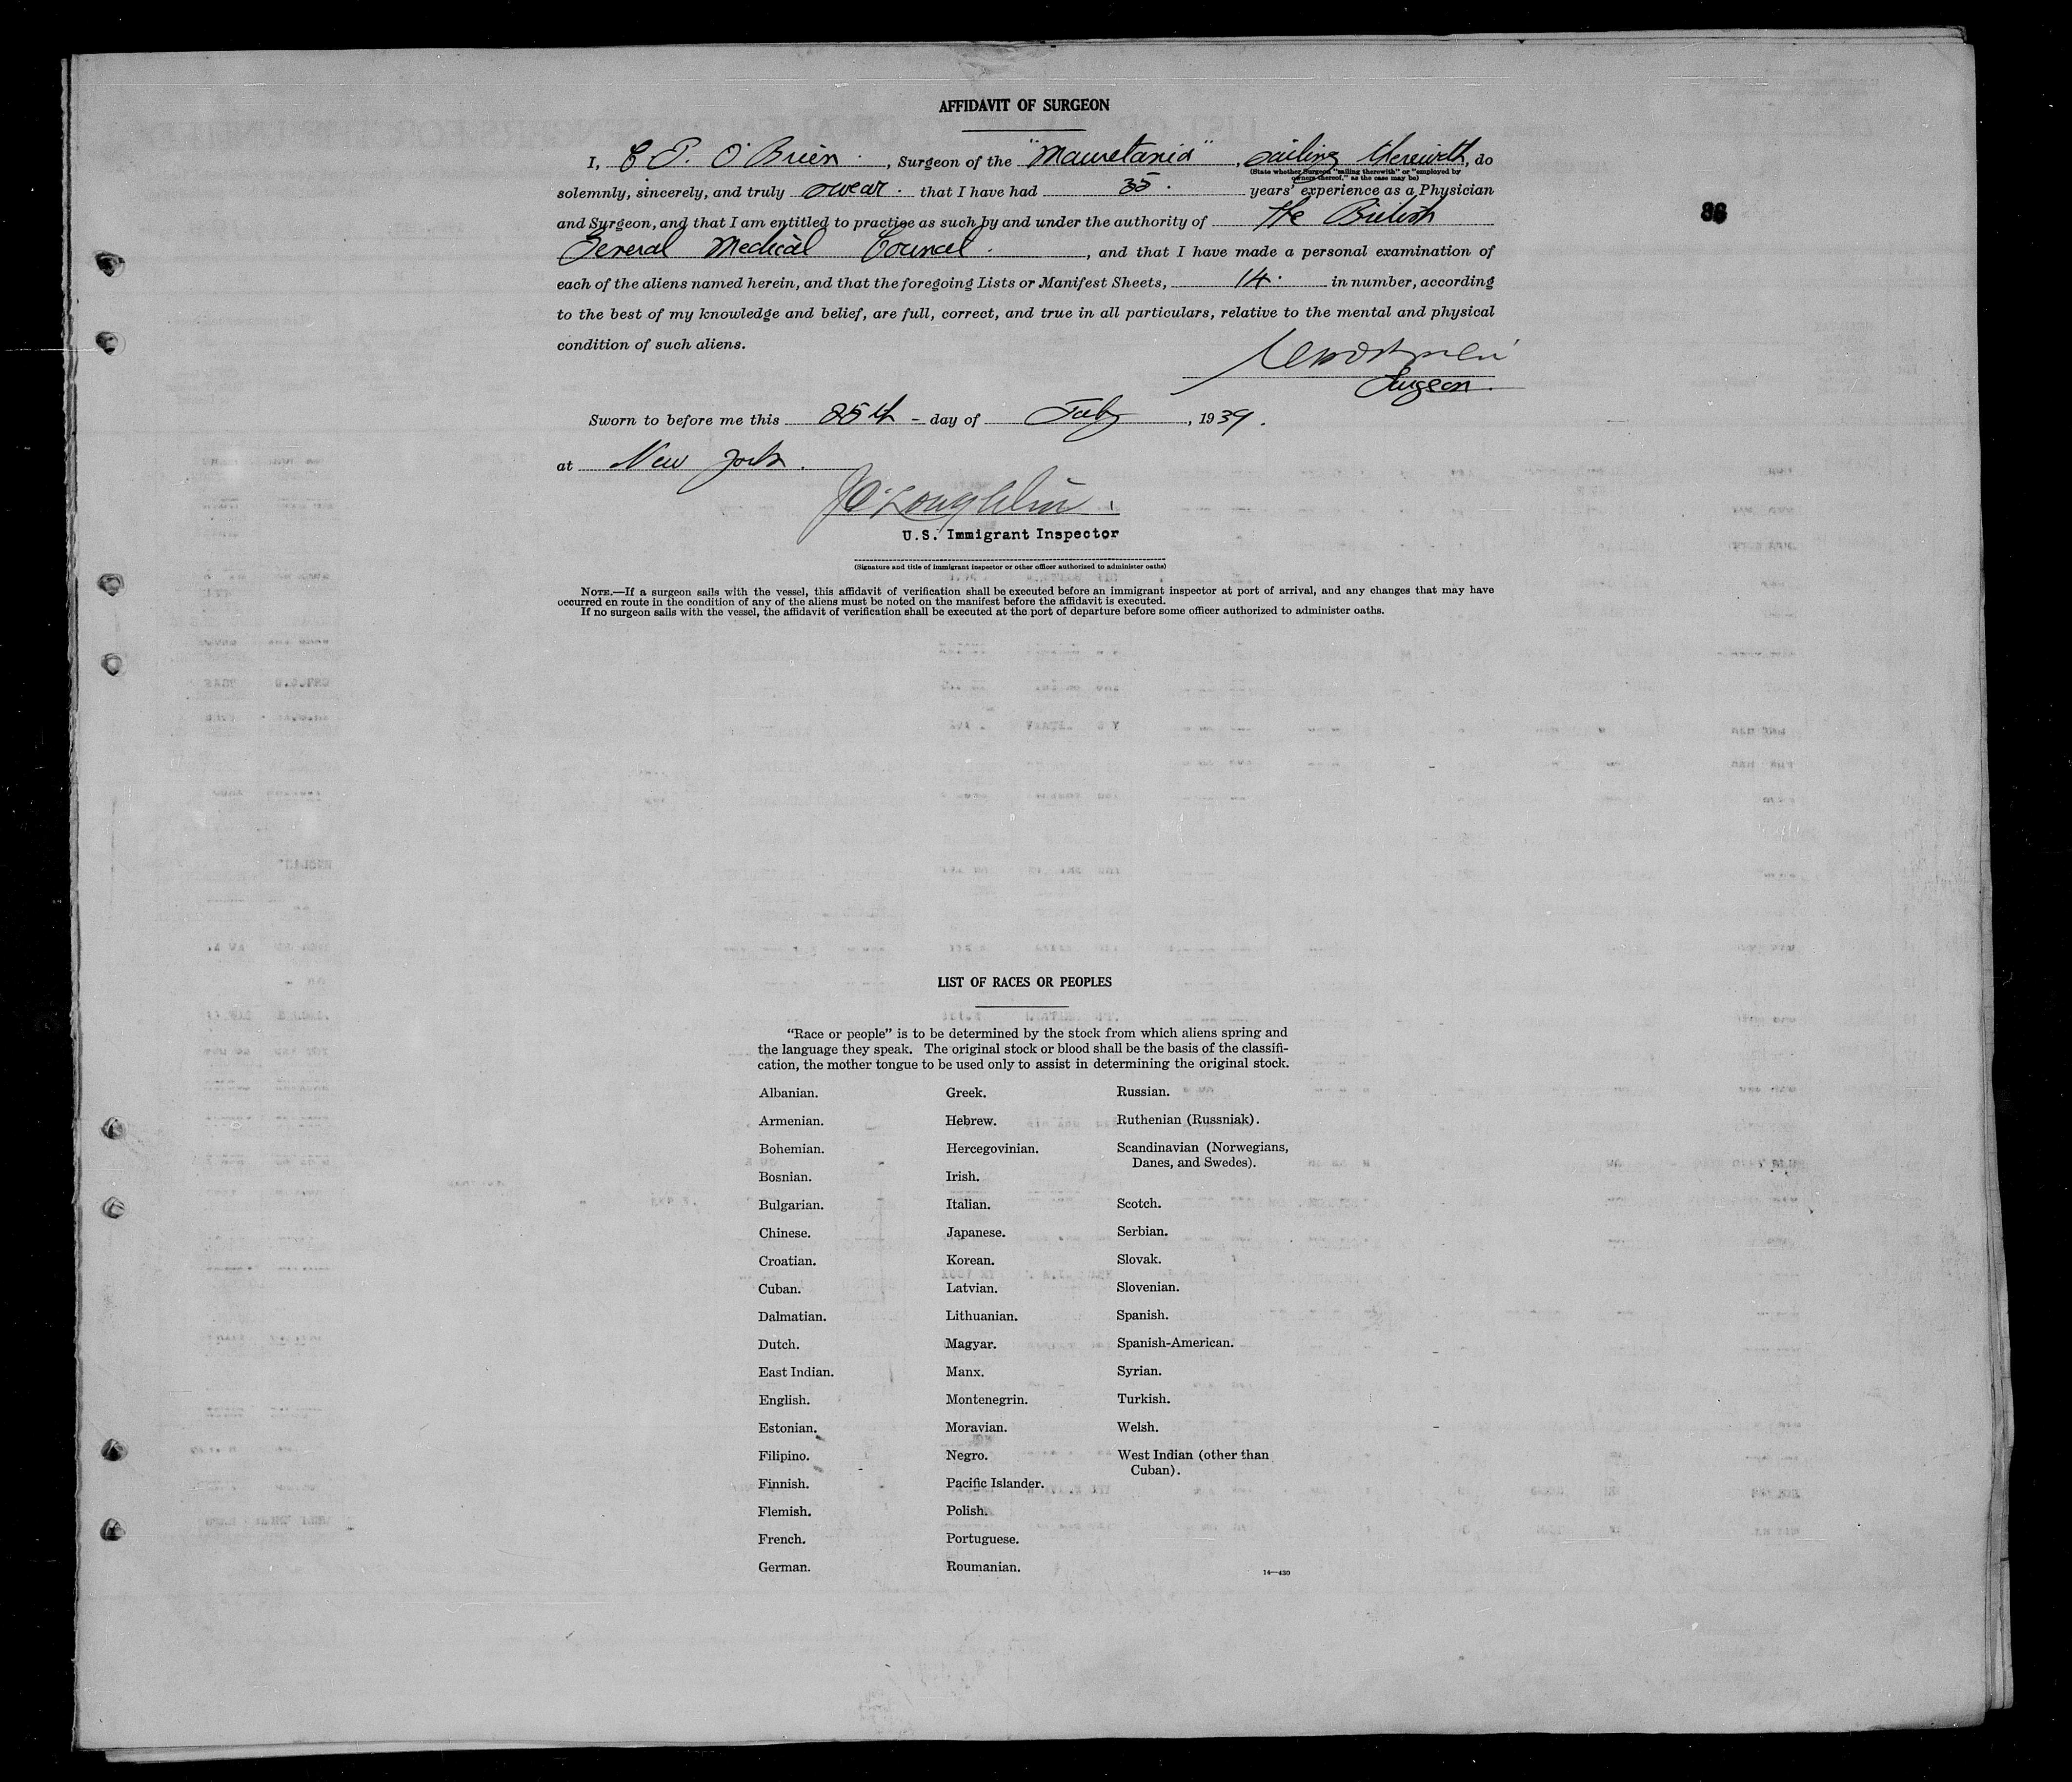 AFFIDAVIT OF SURGEON
I, C P. O'Brien. , Surgeon of the "Mauretania" , sailing therewith, do
(State whether Surgeon "sailing therewith" or "employed by
owners thereof," as the case may be)
solemnly, sincerely, and truly swear. that I have had 35. years' experience as a Physician
and Surgeon, and that I am entitled to practise as such by and under the authority of the British
38
General Medical Council. , and that I have made a personal examination of
each of the aliens named herein, and that the foregoing Lists or Manifest Sheets, 14. in number, according
to the best of my knowledge and belief, are full, correct, and true in all particulars, relative to the mental and physical
condition of such aliens.
Surgeon.
Sworn to before me this 25th - day of July , 1939.
at New York.
J O'Loughlin.
U.S. Immigrant Inspector
(Signature and title of immigrant inspector or other officer authorized to administer oaths)
NOTE.—If a surgeon sails with the vessel, this affidavit of verification shall be executed before an immigrant inspector at port of arrival, and any changes that may have
occurred en route in the condition of any of the aliens must be noted on the manifest before the affidavit is executed.
If no surgeon sails with the vessel, the affidavit of verification shall be executed at the port of departure before some officer authorized to administer oaths.
LIST OF RACES OR PEOPLES
"Race or people" is to be determined by the stock from which aliens spring and
the language they speak. The original stock or blood shall be the basis of the classifi-
cation, the mother tongue to be used only to assist in determining the original stock.
Albanian.
Armenian.
Bohemian.
Bosnian.
Bulgarian.
Chinese.
Croatian.
Cuban.
Dalmatian.
Dutch.
East Indian.
English.
Estonian.
Filipino.
Finnish.
Flemish.
French.
German.
Greek.
Hebrew.
Hercegovinian.
Irish.
Italian.
Japanese.
Korean.
Latvian.
Lithuanian.
Magyar.
Manx.
Montenegrin.
Moravian.
Negro.
Pacific Islander.
Polish.
Portuguese.
Roumanian.
Russian.
Ruthenian (Russniak).
Scandinavian (Norwegians,
Danes, and Swedes).
Scotch.
Serbian.
Slovak.
Slovenian.
Spanish.
Spanish-American.
Syrian.
Turkish.
Welsh.
West Indian (other than
Cuban).
14—430